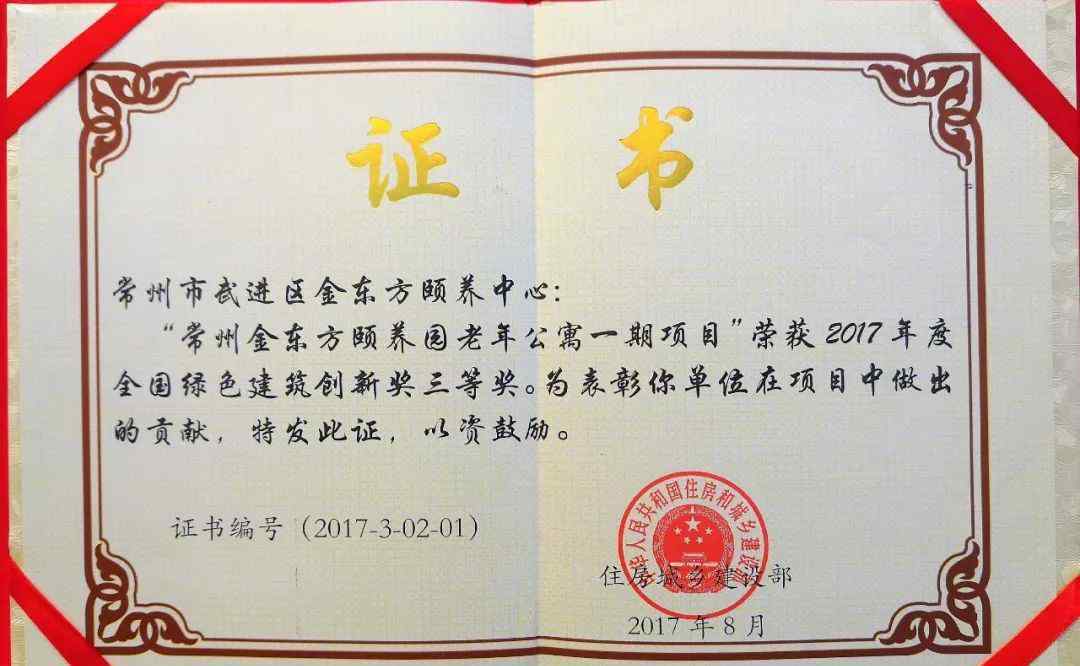 证书
常州市武进区金东方颐养中心：
“常州金东方颐养园老年公寓一期项目”荣获2017年度
全国绿色建筑创新奖三等奖。为表彰你单位在项目中做出
的贡献，特发此证，以资鼓励。
证书编号（2017-3-02-01）
中华人民共和国住房和城乡建设部
住房城乡建设部
2017年8月